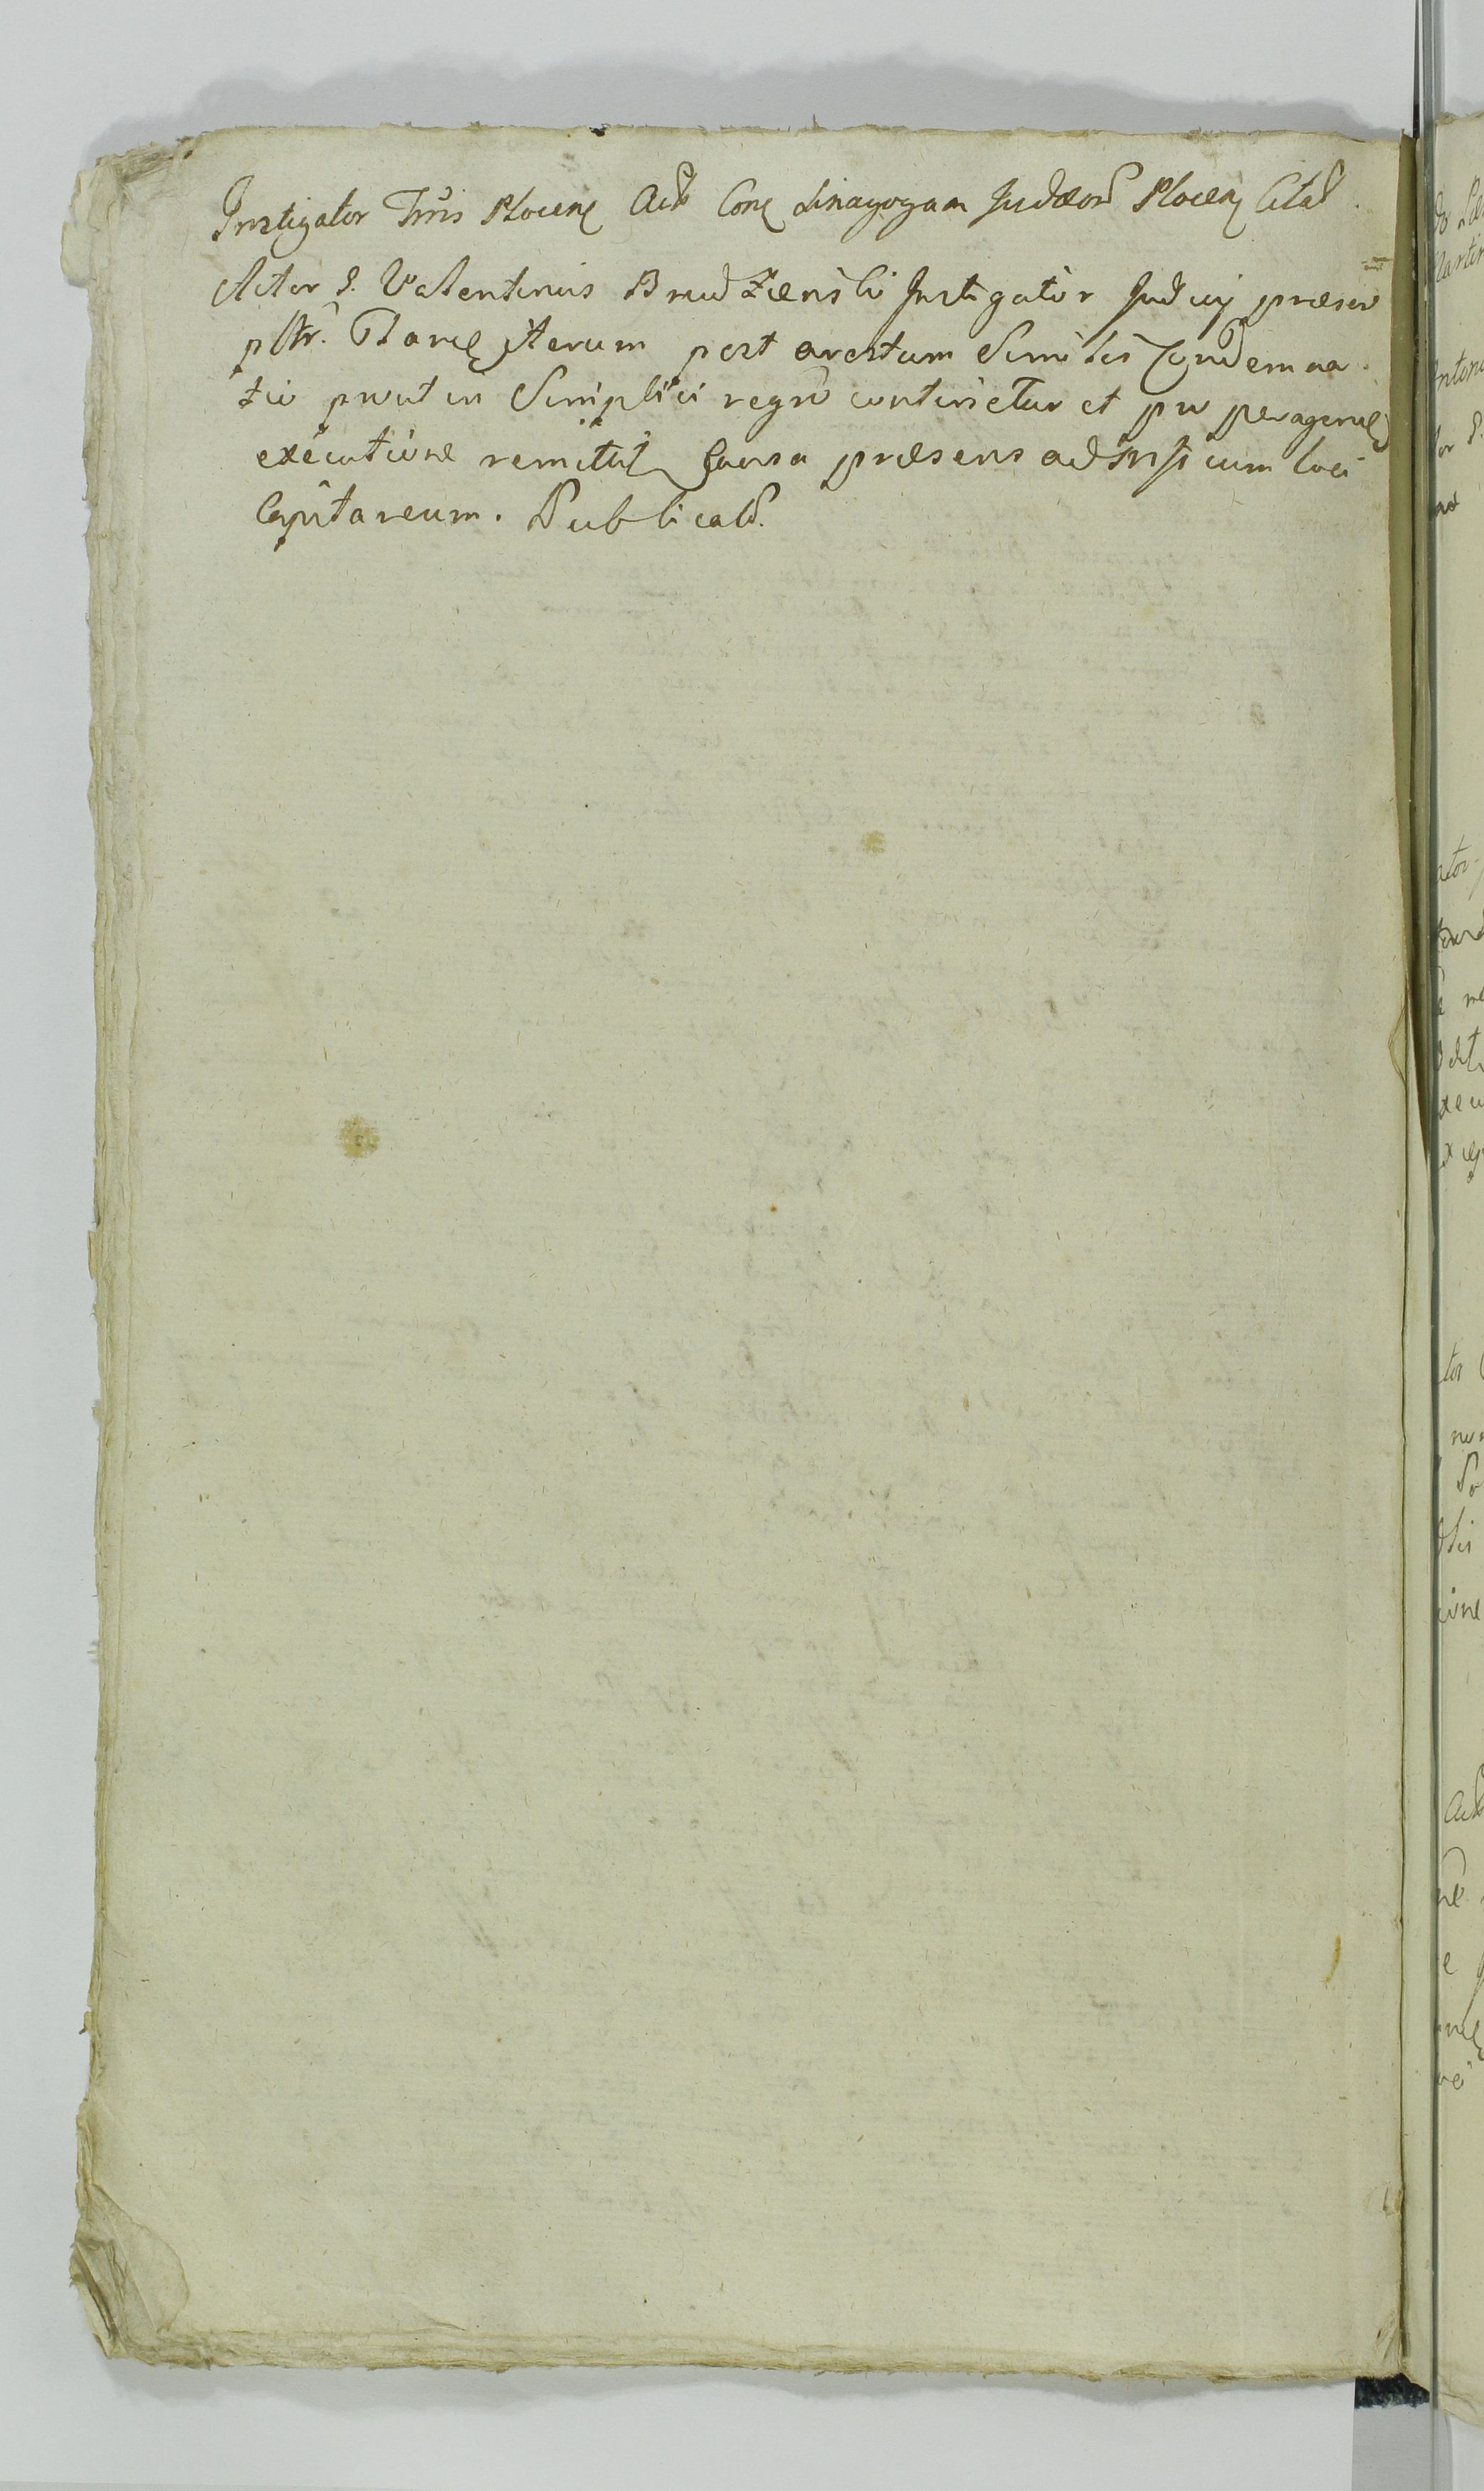 Instigator Trīs Plocenę Actr Conę Sinagogam Judæor Plocenę Citat.
Actor S. Valentinus Brudzienski Instigator Judicij præsen
pltr. Parnę iterum post arestum Similis Condemna
tio prout in Simplici regrō continetur et pro peragenę
executione remittitr Causa præsens ad Offcium loci
Capitaneum. Publicatr.